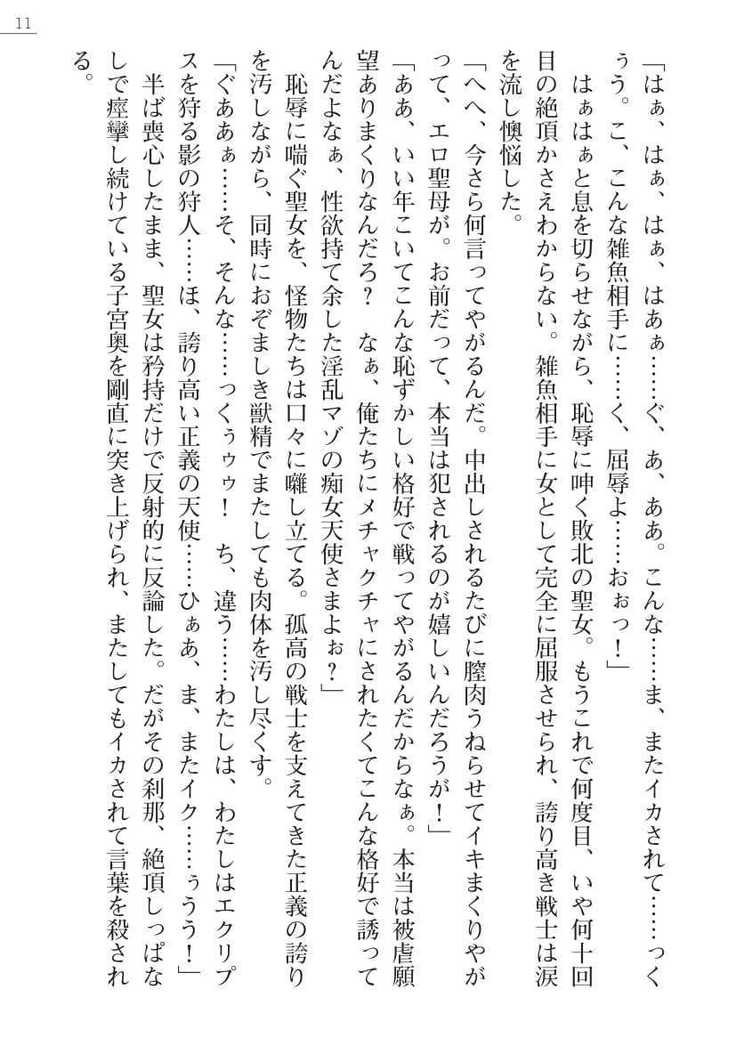 11
「はぁ、はぁ、はぁ、はあぁ……ぐ、あ、ああ。こんな……ま、またイカされて……っく
ぅう。こ、こんな雑魚相手に……く、屈辱よ……おぉっ！」
はぁはぁと息を切らせながら、恥辱に呻く敗北の聖女。もうこれで何度目、いや何十回
目の絶頂かさえわからない。雑魚相手に女として完全に屈服させられ、誇り高き戦士は涙
を流し懊悩した。
「へへ、今さら何言ってやがるんだ。中出しされるたびに膣肉うねらせてイキまくりやが
って、エロ聖母が。お前だって、本当は犯されるのが嬉しいんだろうが！」
「ああ、いい年こいてこんな恥ずかしい格好で戦ってやがるんだからなぁ。本当は被虐願
望ありまくりなんだろ？　なぁ、俺たちにメチャクチャにされたくてこんな格好で誘って
んだよなぁ、性欲持て余した淫乱マゾの痴女天使さまよぉ？」
恥辱に喘ぐ聖女を、怪物たちは口々に囃し立てる。孤高の戦士を支えてきた正義の誇り
を汚しながら、同時におぞましき獣精でまたしても肉体を汚し尽くす。
「ぐああぁ……そ、そんな……っくぅゥゥ！　ち、違う……わたしは、わたしはエクリプ
スを狩る影の狩人……ほ、誇り高い正義の天使……ひぁあ、ま、またイク……ぅうう！」
半ば喪心したまま、聖女は矜持だけで反射的に反論した。だがその刹那、絶頂しっぱな
しで痙攣し続けている子宮奥を剛直に突き上げられ、またしてもイカされて言葉を殺され
る。